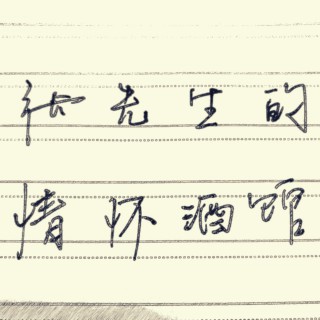 先生的
情怀酒馆